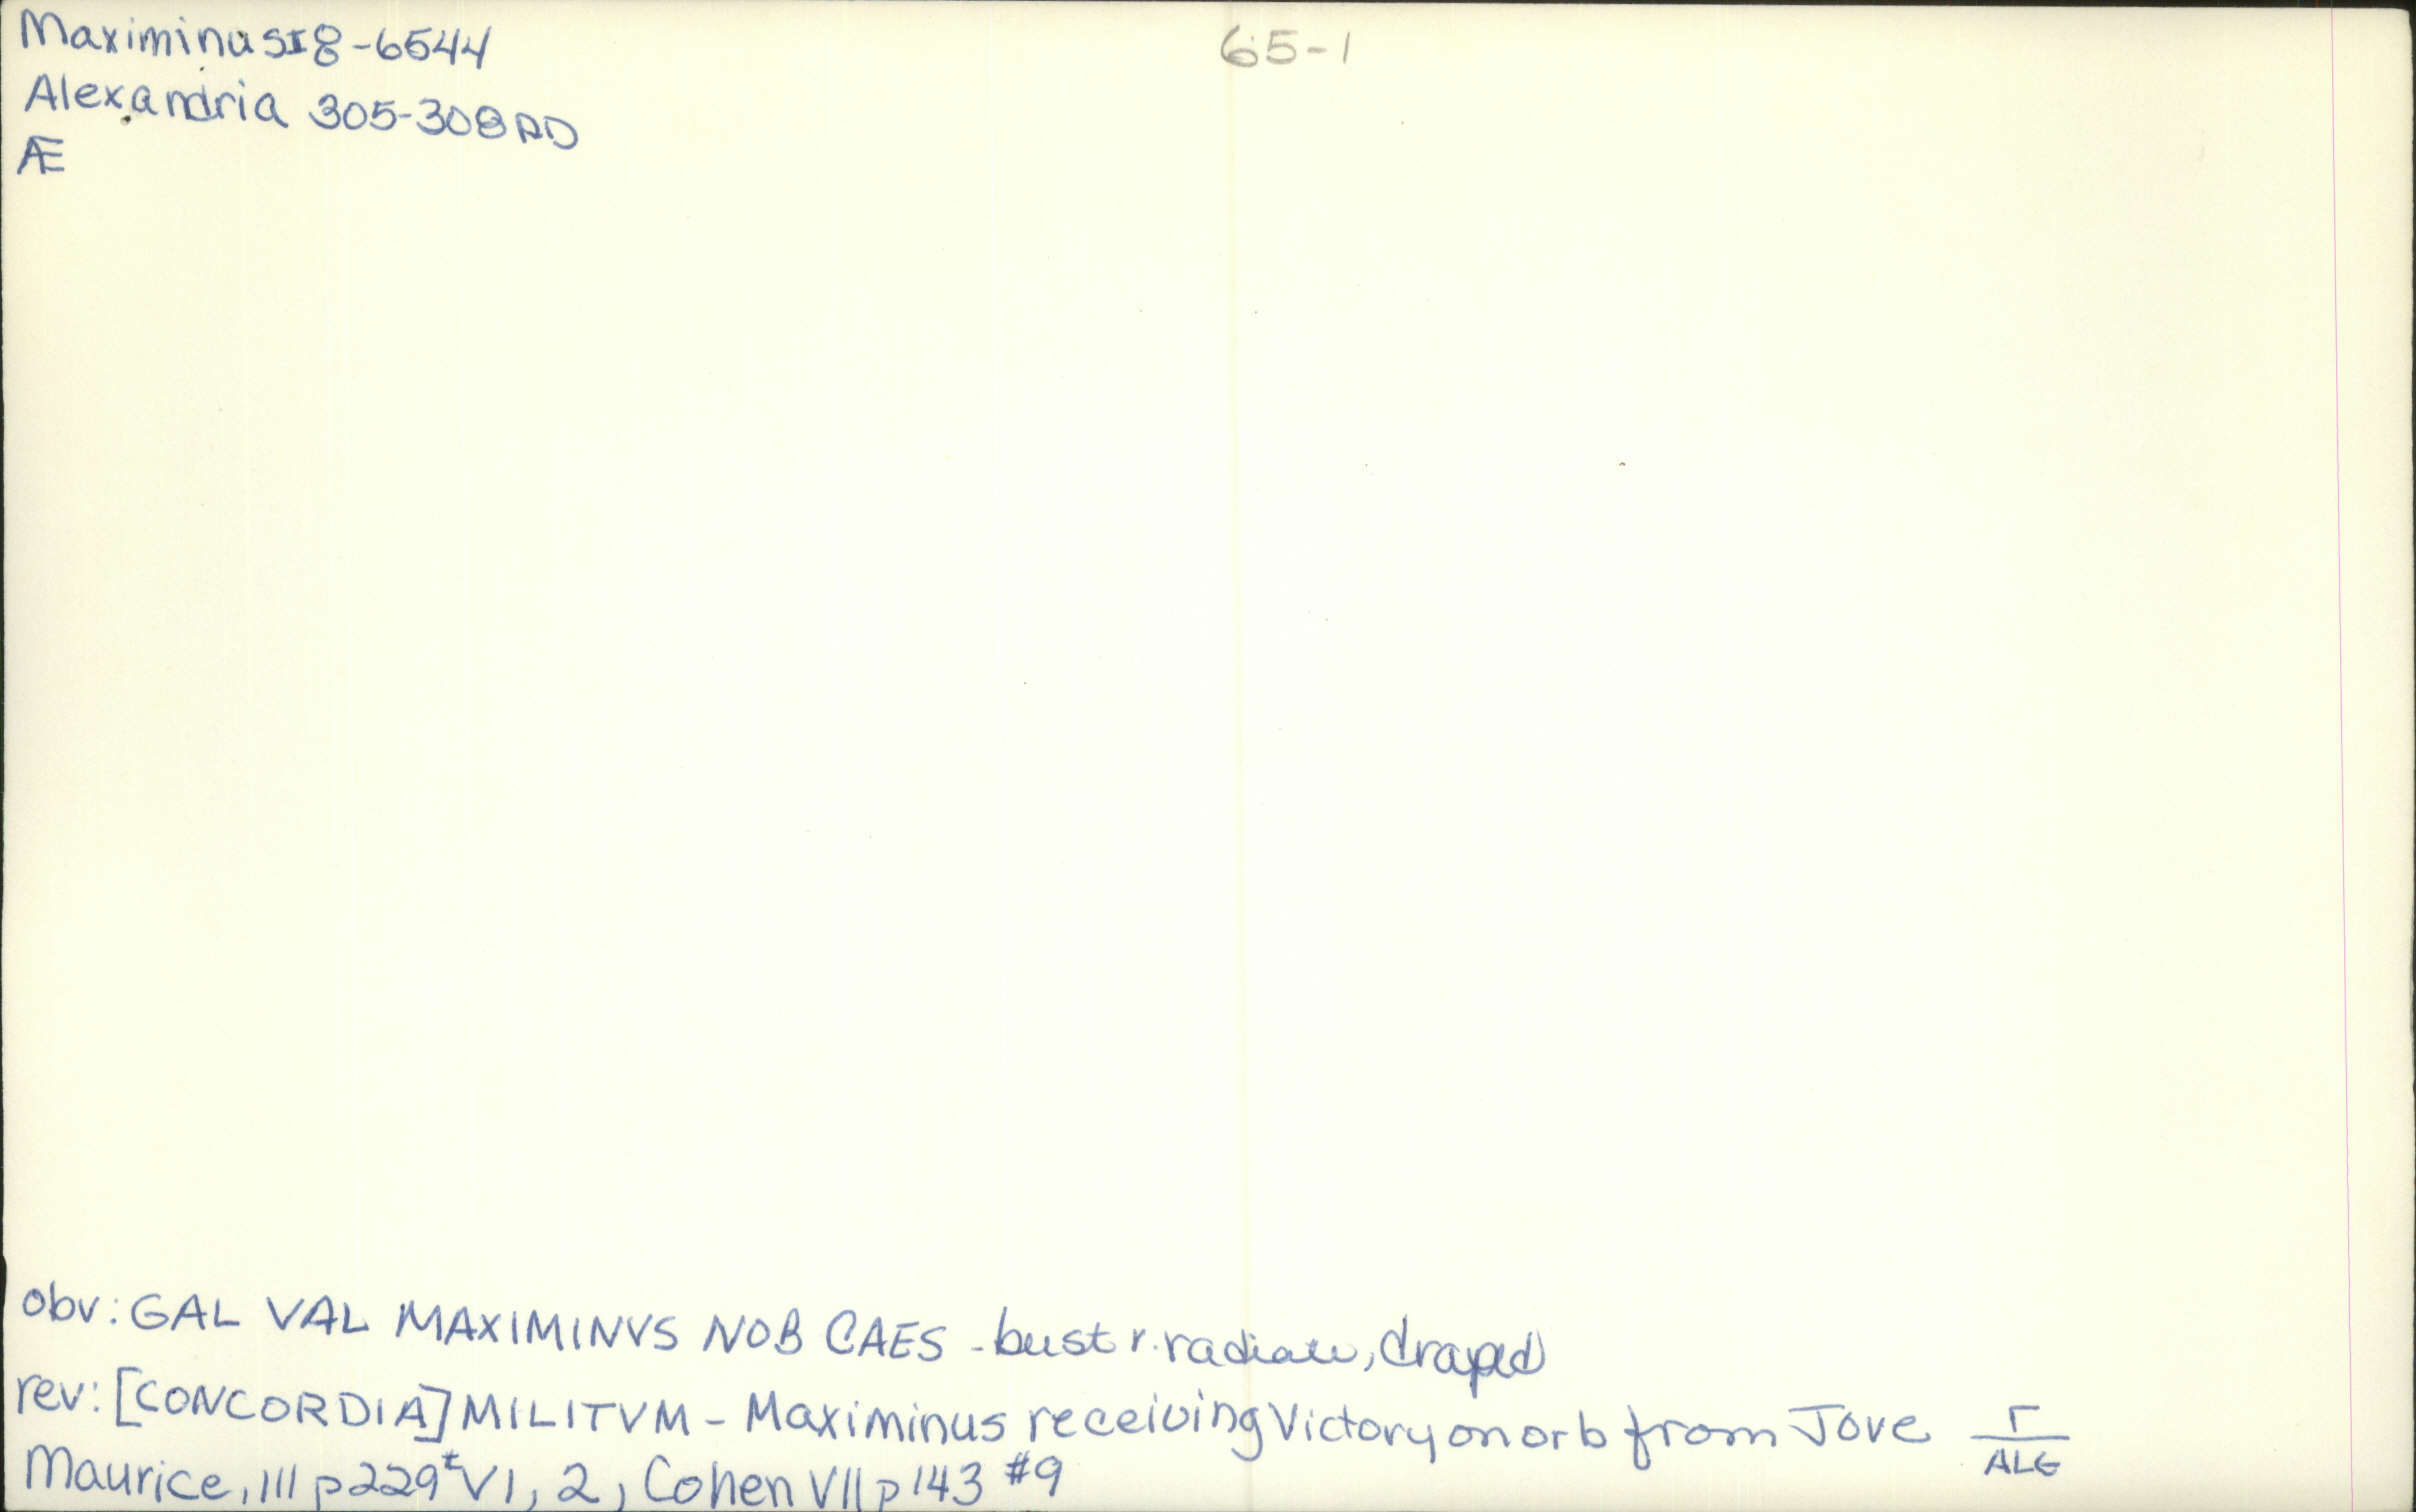 MaximinusI 8-6544
65-1
Alexandria 305-308 AD
Æ
obv: GAL VAL MAXIMINVS NOB CAES - bust r. radiate, draped
rev: [CONCORDIA] MILITVM - Maximinus receiving Victory on orb from Jove Γ
ALE
Maurice, III p229 # VI, 2, Cohen VII p143 #9